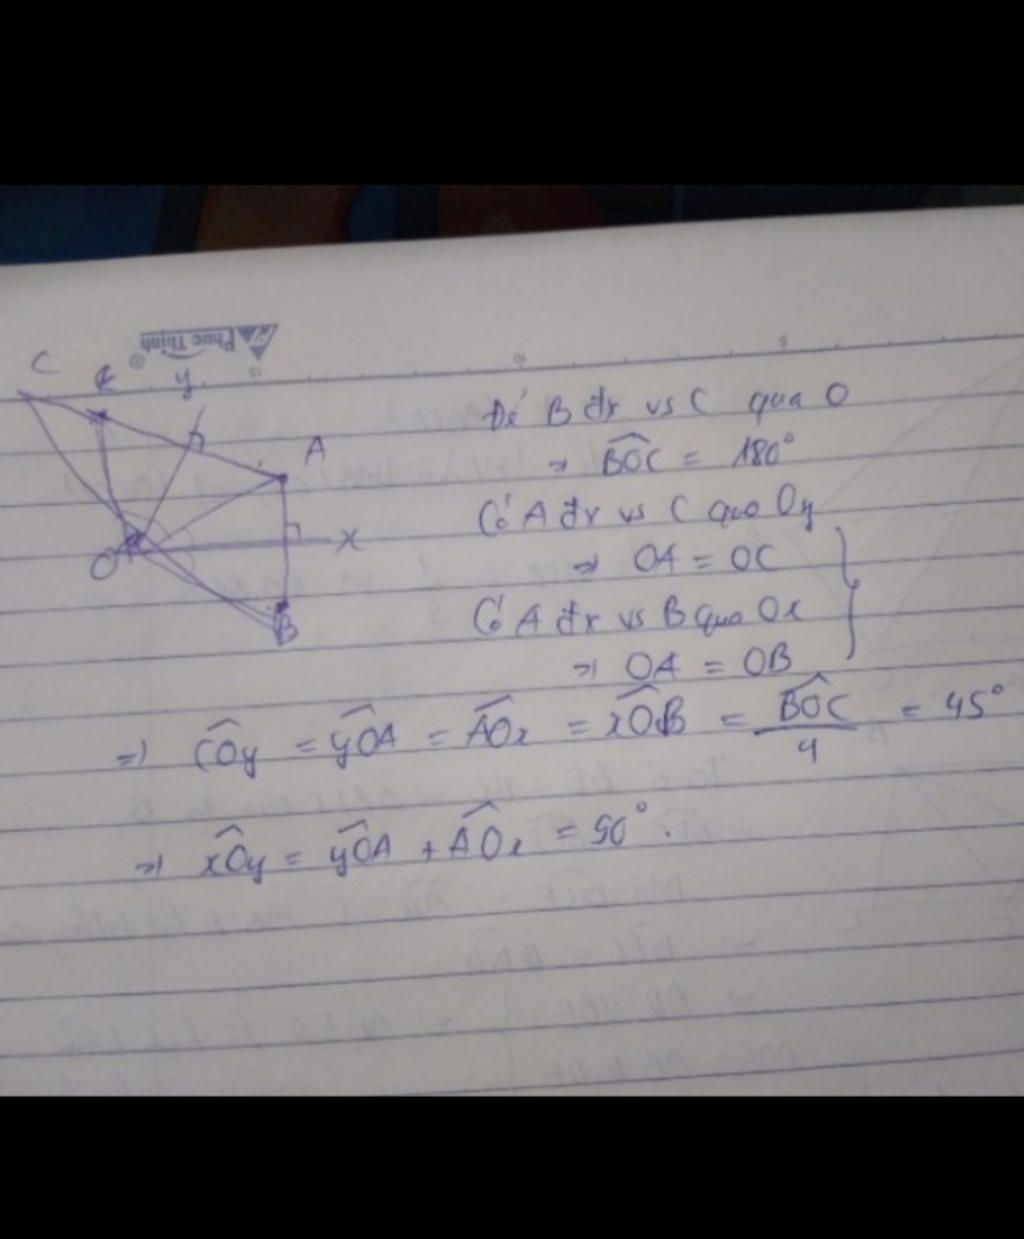 Phúc Thịnh
®
C
y
15
10
5
A
x
O
B
Để B đx vs C qua O
⇒ BÔC = 180°
Có A đx vs C qua Oy
⇒ OA = OC
Có A đx vs B qua Ox
⇒ OA = OB
⇒ CÔy = yÔA = AÔx = xÔB = BÔC/4 = 45°
⇒ xÔy = yÔA + AÔx = 90°.